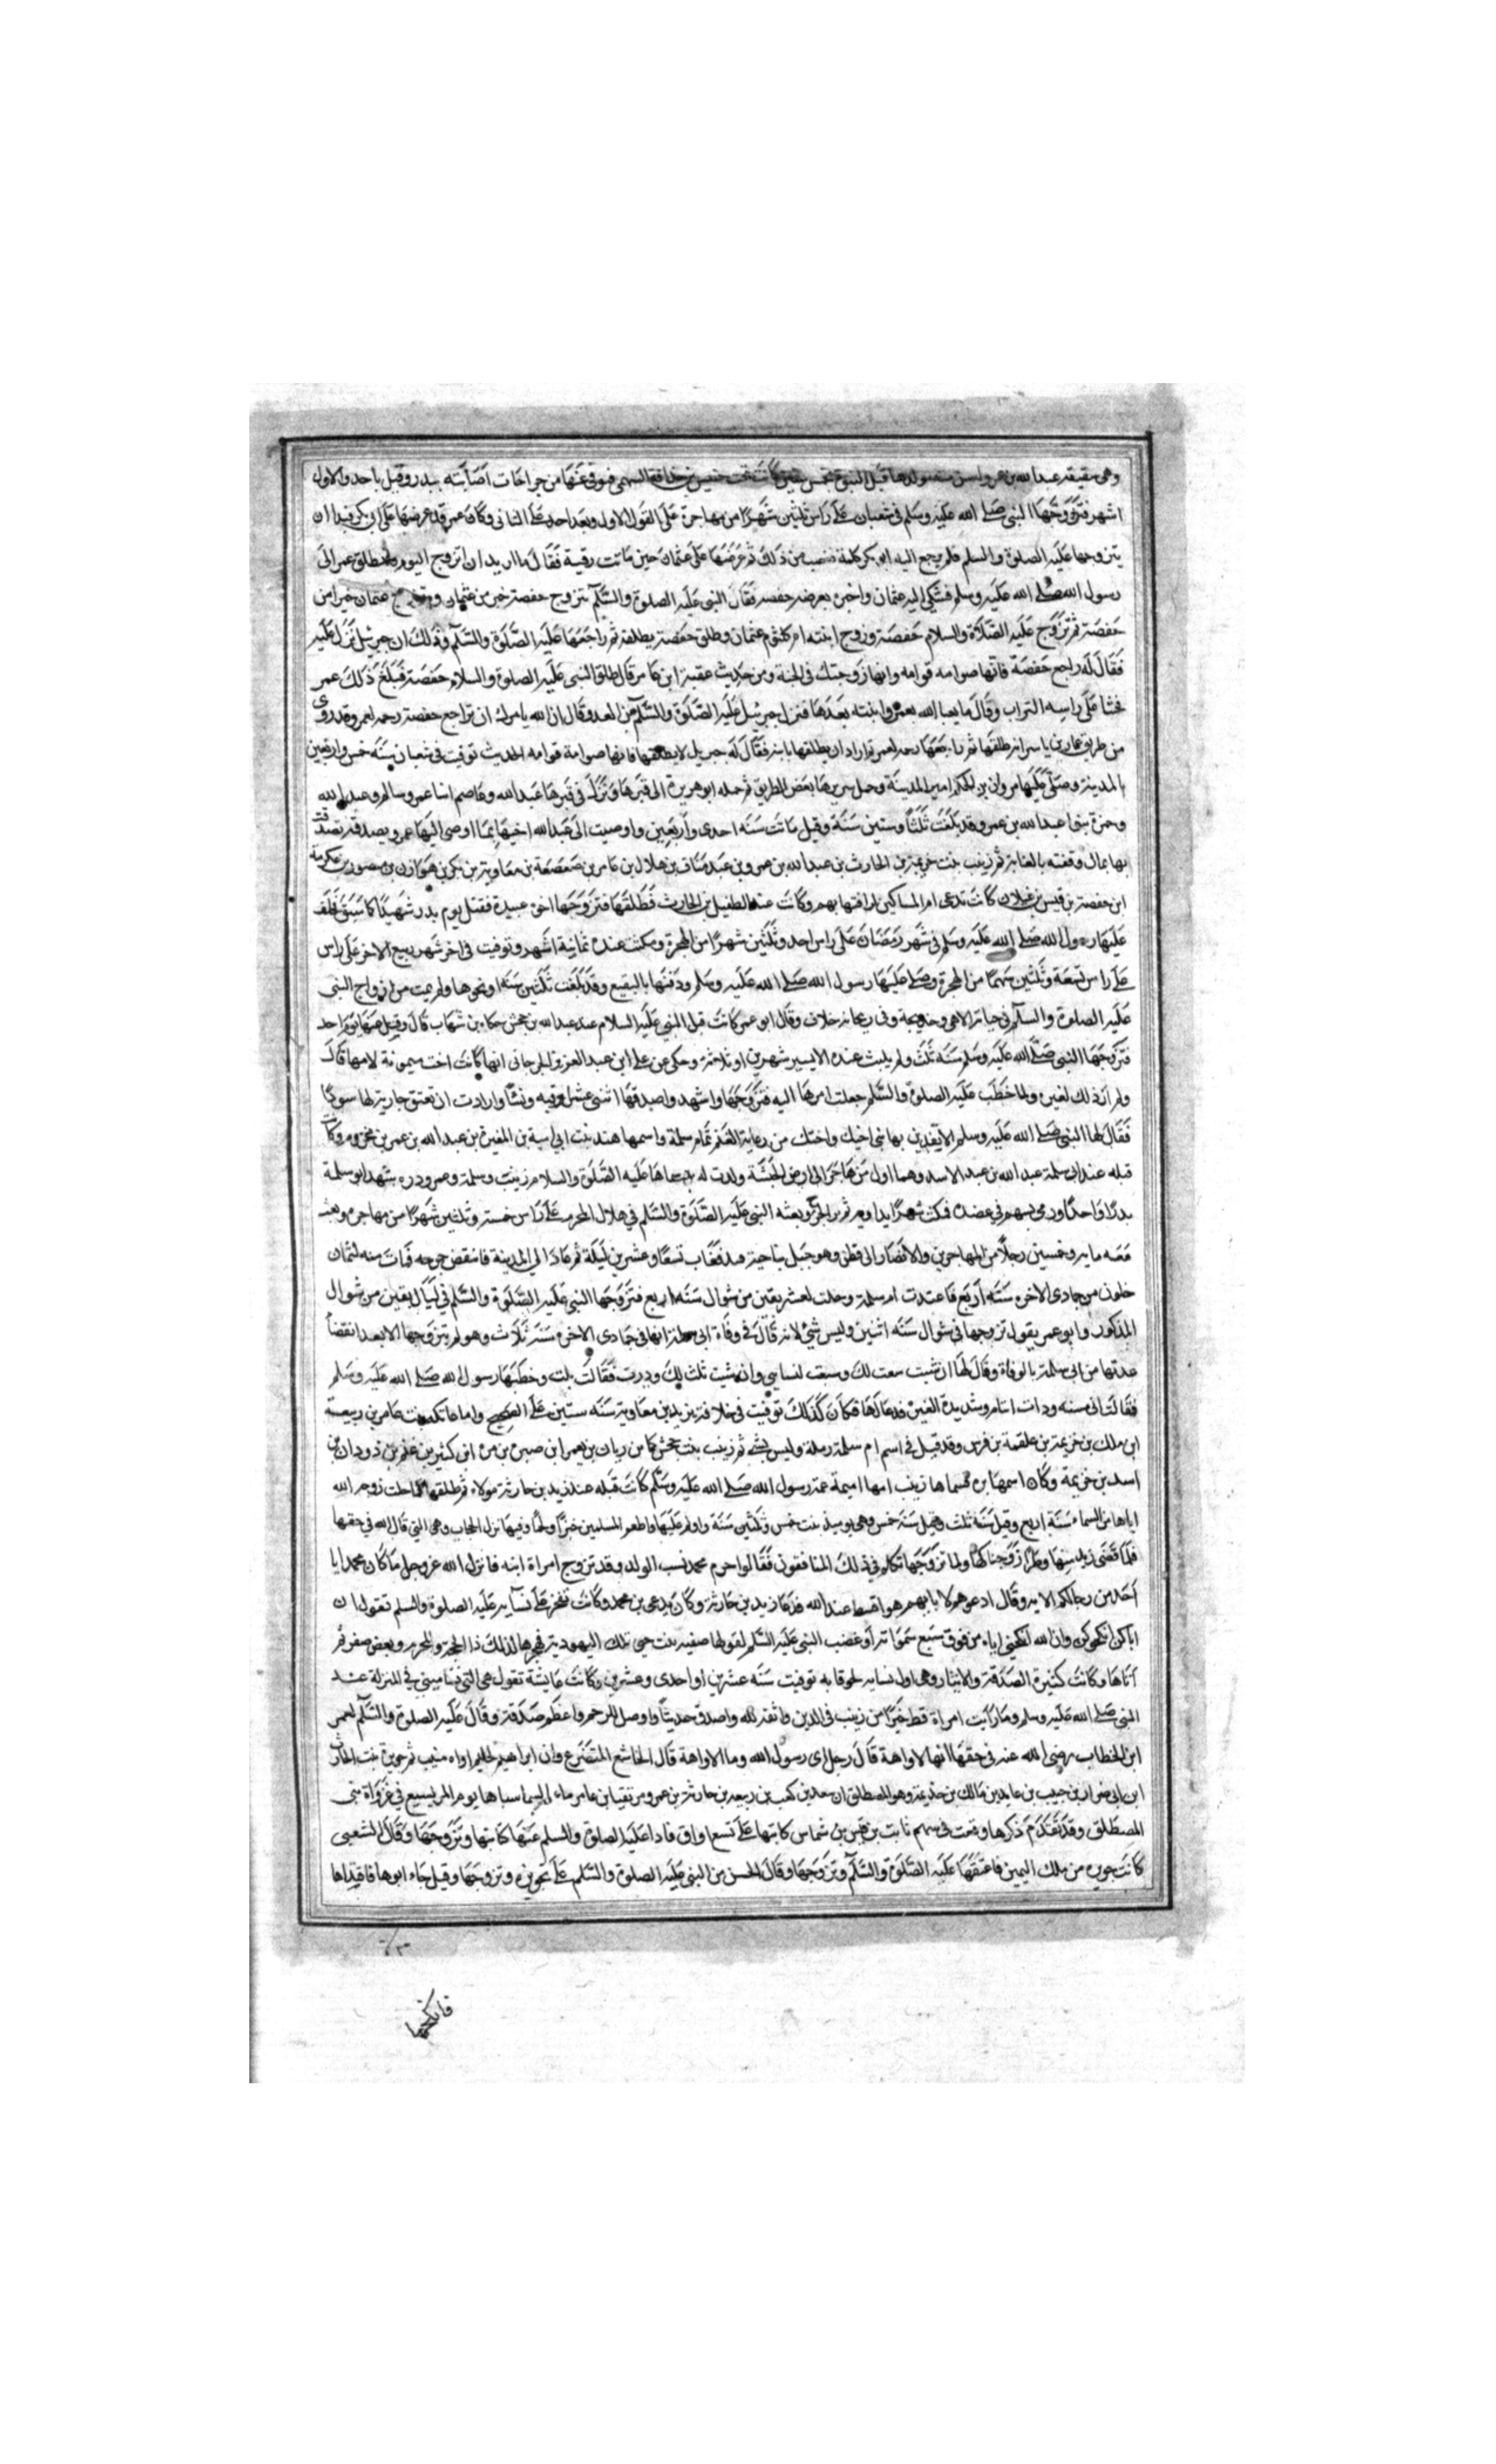 وهى شقيقة عبدالله بن عمر واسن منه مولدها قبل النبوة بخمس سنين كانت تحت خنيس بن حذافة السهمى فتوفى عنها من جراحات اصابته ببدر وقيل باحد والاول
اشهر فتزوجها النبى صلى الله عليه وسلم فى شعبان على راس ثلثين شهرا من مهاجرة على القول الاول وبعد احد على الثانى وكان عمر قد عرضها على ابى بكر قبل ان
يتزوجها عليه الصلوة والسلم فلم يرجع اليه ابو بكر كلمة فغضب من ذلك ثم عرضها على عثمان حين ماتت رقية فقال ما اريد ان اتزوج اليوم فانطلق عمر الى
رسول الله صلى الله عليه وسلم فشكى اليه عثمان واخبره بعرضه حفصه فقال النبى عليه الصلوة والسلم تتزوج حفصة خير من عثمان ويتزوج عثمان خيرا من
حفصة ثم تزوج عليه الصلاة والسلام حفصة وزوج ابنته ام كلثوم عثمان وطلق حفصة يطلقه ثم راجعها عليه الصلوة والسلم وذلك ان جبرئيل نزل عليه
فقال له راجع حفصة فانها صوامه قوامه وانها زوجتك فى الجنة ومن حديث عقبة ابن عامر قال طلق النبى عليه الصلوة والسلام حفصة فبلغ ذلك عمر
فحثا على راسه التراب وقال ما يعبا الله بعمر وابنته بعدها فنزل جبرئيل عليه الصلوة والسلم من الغد وقال ان الله يامرك ان تراجع حفصة رحمه لعمر وقد روى
من طريق عمار بن ياسر انه طلقها ثم راجعها رحمه لعمر ثم اراد ان يطلقها بانيه فقال له جبريل لا يطلقها فانها صوامة قوامه الحديث توفيت فى شعبان سنه خمس واربعين
بالمدينة وصلى عليها مروان بن الحكم امير المدينة وحمل سريرها بعض الطريق ثم حمله ابو هريرة الى قبرها ونزل فى قبرها عبدالله وعاصم ابنا عمر وسالم وعبدالله
وحمزة بنوا عبدالله بن عمر وقد بلغت ثلثا وستين سنة وقيل ماتت سنه احدى واربعين واوصيت الى عبدالله اخيها بما اوصى اليها عمر وبصدقه تصدقت
بها بمال وقفته بالغابة ثم زينب بنت خزيمة بن الحارث بن عبدالله بن عمرو بن عبد مناف بن هلال بن عامر بن صعصعة بن معاوية بن بكر بن هوازن بن منصور بن عكرمة
ابن حفصة بن قيس بن غيلان كانت تدعى ام المساكين لرافتها بهم وكانت عند الطفيل بن الحارث فطلقها فتزوجها اخوه عبيدة فقتل يوم بدر شهيدا كما سبق فخلف
عليها رسول الله صلى الله عليه وسلم فى شهر رمضان على راس احد وثلثين شهرا من الهجرة ومكثت عنده ثمانية اشهر وتوفيت فى اخر شهر ربيع الاخر على راس
على راس تسعة وثلثين شهرا من الهجرة وصلى عليها رسول الله صلى الله عليه وسلم ودفنها بالبقيع وقد بلغت ثلثين سنه او نحوها ولم يمت من ازواج النبى
عليه الصلوة والسلم فى حياته الا هى وخديجة وفى ريحانة خلاف وقال ابو عمر كانت قبل النبى عليه السلام عند عبدالله بن جحش حكاه بن شهاب قال وقتل عنها يوم احد
فتزوجها النبى صلى الله عليه وسلم سنه ثلث ولم يلبث عنده الا يسير شهرين او ثلاثة وحكى عن على ابن عبد العزيز الجرجانى انها كانت اخت ميمونة لامها قال
ولم ار ذلك لغيره ولما خطب عليه الصلوة والسلم جعلت امرها اليه فتزوجها واشهد واصدقها اثنى عشر اوقيه ونشا وارادت ان تعتق جارية لها سودا
فقال لها النبى صلى الله عليه وسلم الا تفدين بها بنى اخيك واختك من رعاية الغنم ثم ام سلمة واسمها هند بنت ابى امية بن المغيرة بن عبدالله بن عمر بن مخزوم وكانت
قبله عند ابى سلمة عبدالله بن عبد الاسد وهما اول من هاجر الى ارض الحبشة ولدت له سماها عليه الصلوة والسلام زينب وسلمة وعمر ودره شهد ابو سلمة
بدرا واحدا ورمى بسهم فى عضده فمكث شهرا يداويه ثم برا الجرح وبعثه النبى عليه الصلوة والسلم فى هلال المحرم على راس خمسة وثلثين شهرا من مهاجره وبعث
معه مايه وخمسين رجلا من المهاجرين والانصار الى قطن وهو جبل بناحية فيد فغاب تسعا وعشرين ليلة ثم عاد الى المدينة فانتقض جرحه فمات منه لثمان
خلون من جمادى الاخره سنه اربع فاعتدت ام سلمة وحلت لعشر بقين من شوال سنه اربع فتزوجها النبى عليه الصلوة والسلم فى ليال بقين من شوال
المذكور وابو عمر يقول تزوجها فى شوال سنه اثنين وليس شئ لانه قال فى وفاة ابى سلمة انها فى جمادى الاخره سنة ثلاث وهو لم يتزوجها الا بعد انقضا
عدتها من ابى سلمة بالوفاة وقال لها ان شيت سبعت لك وسبعت لنسايى وان شيت ثلث لك ودرت فقالت بلث وخطبها رسول الله صلى الله عليه وسلم
فقالت انى مسنه وذات ايتام وشديدة الغيرة فدعا لها فكان كذلك توفيت فى خلافة يزيد بن معاوية سنه ستين على الصحيح واما عاتكة بنت عامر بن ربيعة
ابن ملك بن خزيمة بن علقمة بن فرس وقد قيل فى اسم ام سلمة رملة وليس بشئ ثم زينب بنت جحش كاس ريان بن يعمر ابن صبرة بن مرة ابن كثير بن غنم بن دودان بن
اسد بن خزيمة وكان اسمها بره فسماها زينب امها اميمة عمة رسول الله صلى الله عليه وسلم كانت قبله عند زيد بن حارثة مولاه ثم طلقها فلما حلت زوجه الله
اياها من السماء سنة اربع وقيل سنة ثلث وقيل سنة خمس وهى يوميذ بنت خمس وثلثين سنة واولم عليها واطعم المسلمين خبزا ولحما وفيها نزل الحجاب وهى التى قال الله فى حقها
فلما قضى زيد منها وطرا زوجناكها ولما تزوجها تكلم فى ذلك المنافقون فقالوا حرم محمد نسب الولد وقد تزوج امراة ابنه فانزل الله عز وجل ما كان محمد ابا
احد من رجالكم الايه وقال ادعوهم لابايهم هو اقسط عند الله فدعا زيد بن حارثة وكان يدعى بن محمد وكانت تفخر على نسآيه عليه الصلوة والسلم تقول ان
اباكن انكحوكن وان الله انكحنى اياه من فوق سبع سموات وغضب النبى عليه السلم لقولها صفيه بنت حيى تلك اليهودية فهجرها لذلك ذا الحجة والمحرم وبعض صفر ثم
اتاها وكانت كثيرة الصدقة والايثار وهى اول نسايه لحوقا به توفيت سنه عشرين او احدى وعشرين وكانت عايشة تقول هى التى تسامينى فى المنزلة عند
النبى صلى الله عليه وسلم وما رايت امراة قط خيرا من زينب فى الدين واتقى لله واصدق حديثا واوصل للرحم واعظم صدقة وقال عليه الصلوة والسلم لعمر
ابن الخطاب رضى الله عنه فى حقها انها لاواهة قال رجل اى رسول الله وما الاواهة قال الخاشع المتضرع وان ابراهيم لحليم اواه منيب ثم جويرية بنت الحارث
ابن ابى ضرار بن حبيب بن عايد بن مالك بن خذيمة وهو المصطلق ان سعد بن كعب بن ربيعه بن حارثة بن عمرو مزيقيا بن عامر ماء السما سباها يوم المريسيع فى غزوة بنى
المصطلق وقد تقدم ذكرها وقعت فى سهم ثابت بن قيس بن شماس كاتبها على تسع اواق فادا عليه الصلوة والسلم عنها كتابتها وتزوجها وقال الشعبى
كانت جويره من ملك اليمين فاعتقها عليه الصلوة والسلم وتزوجها وقال الحسن من النبى عليه الصلوة والسلم على جويريه وتزوجها وقيل جاء ابوها فافتداها
فانكحها